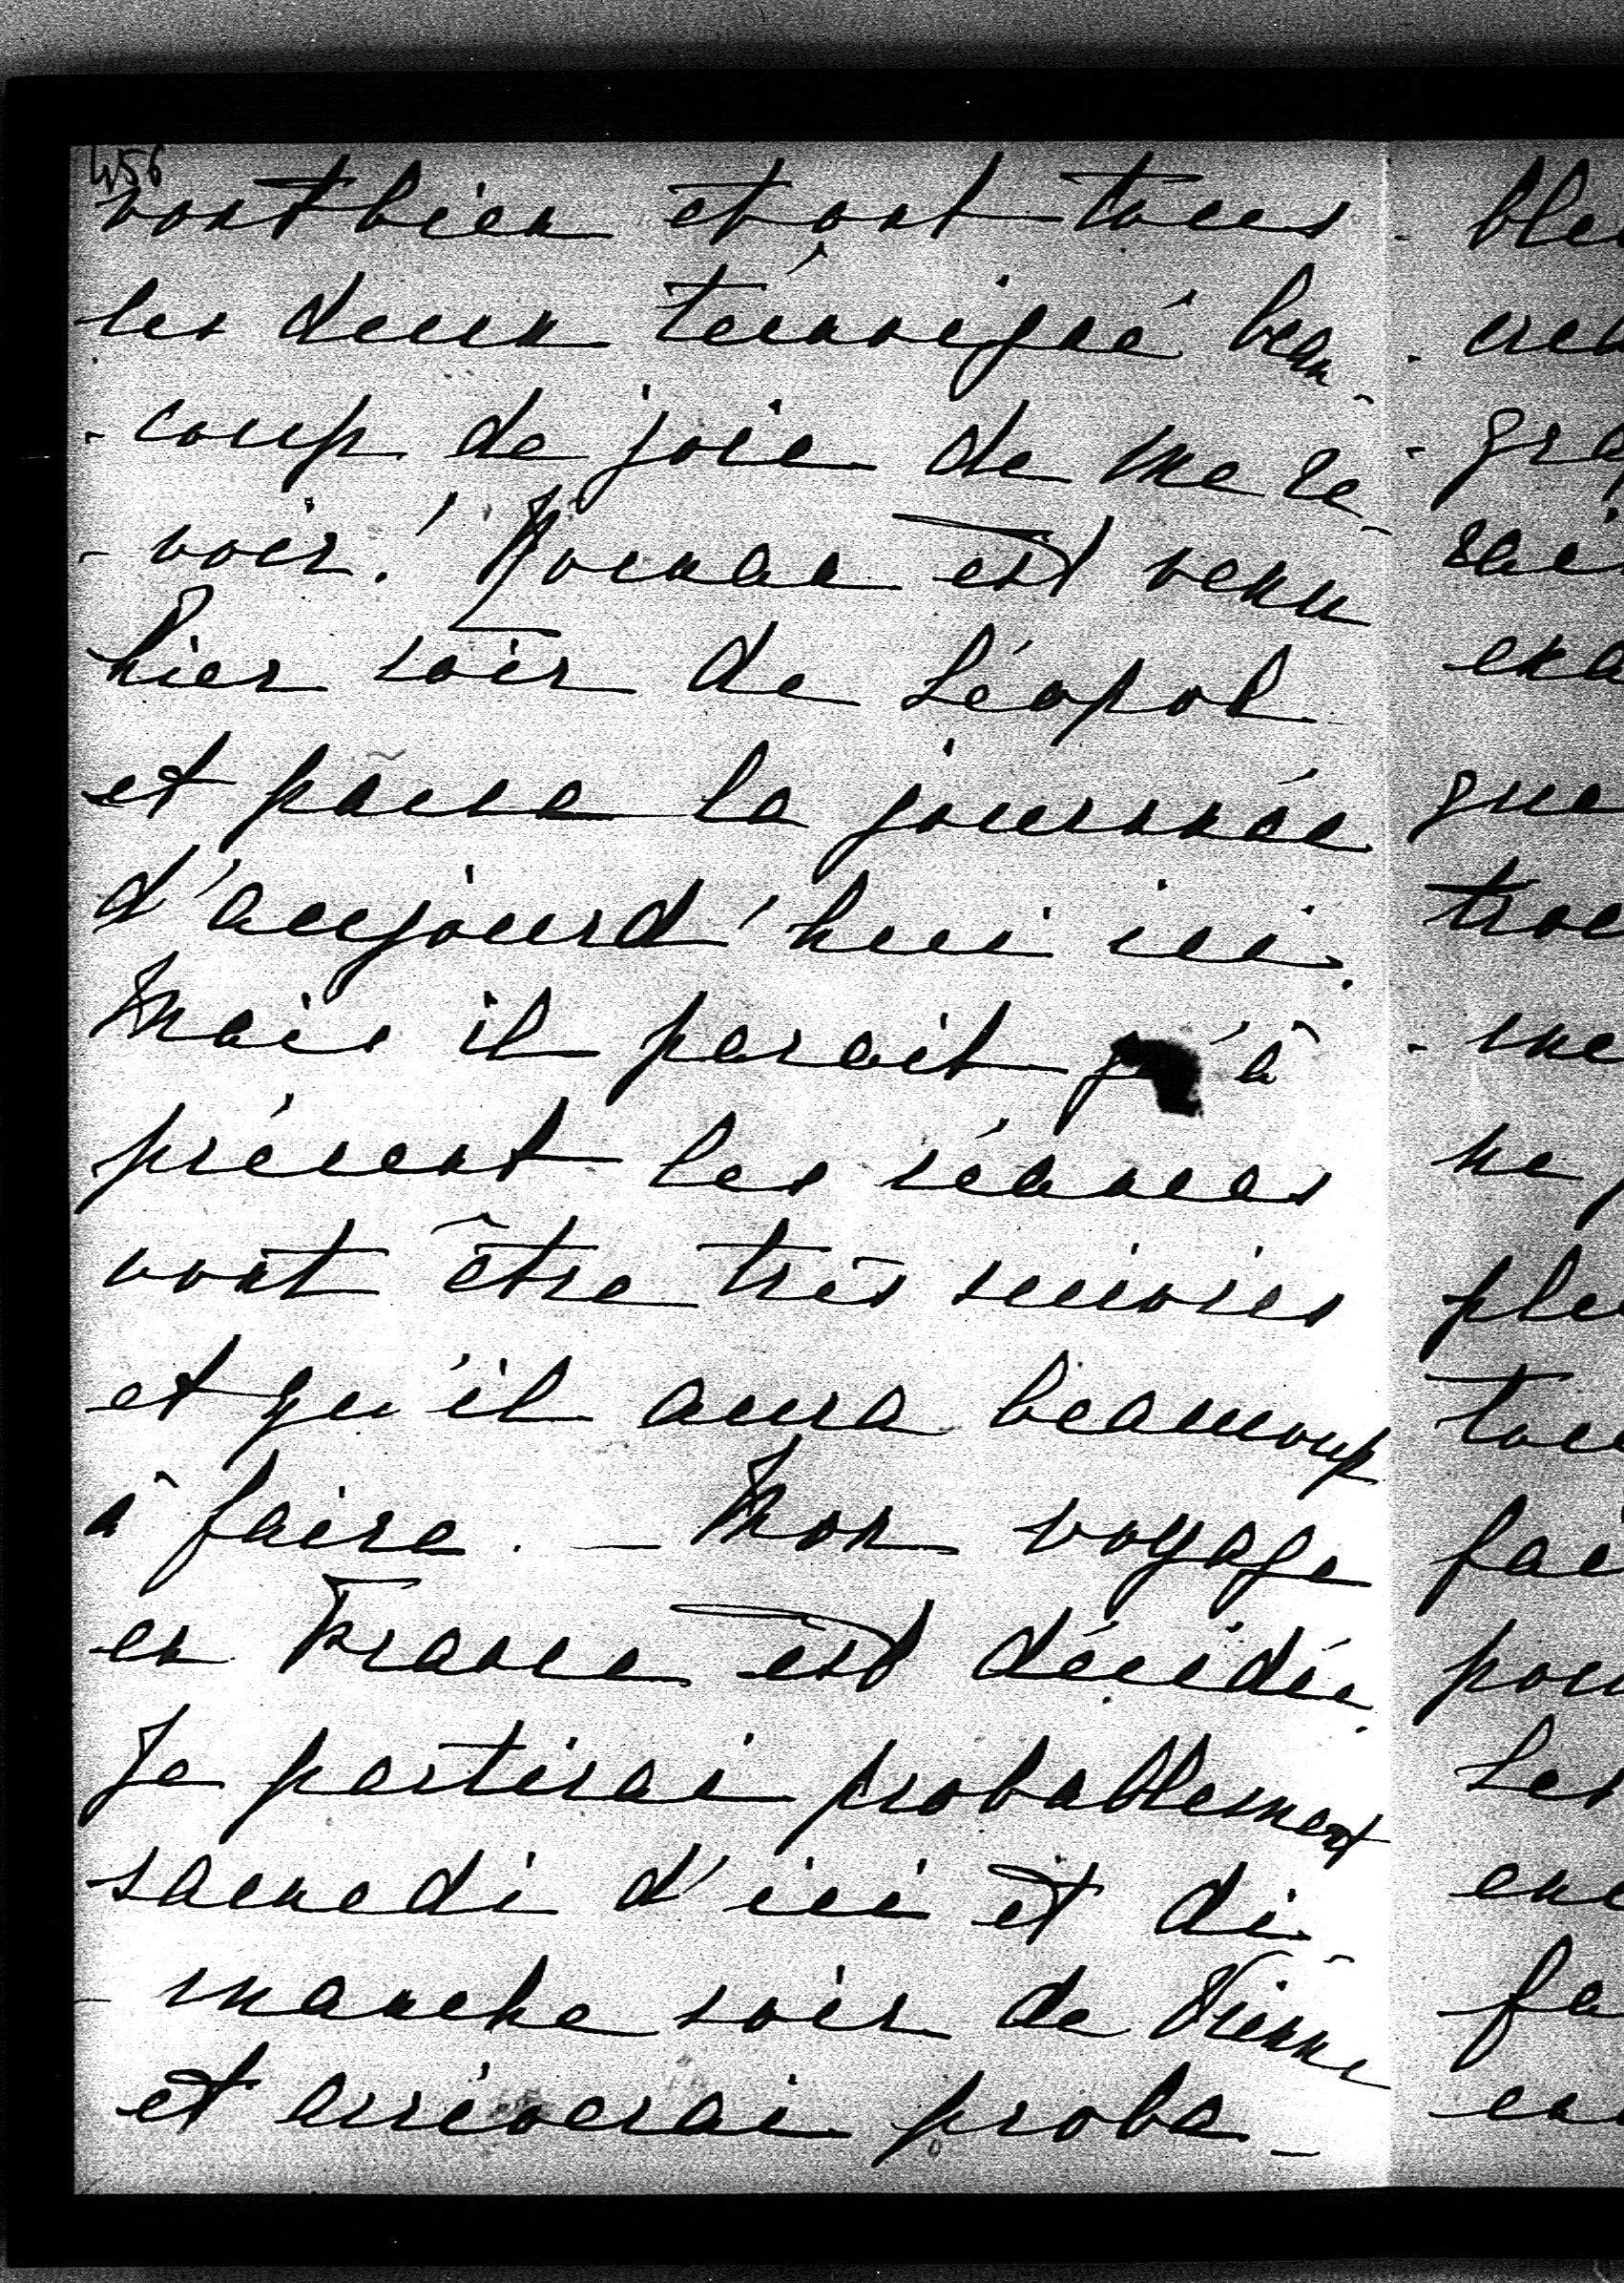 456
vont bien et ont tous
les deux témoigné beau-
-coup de joie de me re-
-voir! est venu
hier soir de Léopol
et passe la journée
d'aujourd'hui ici.
Mais il parait qu'à
présent les séances
vont être très suivies
et qu'il aura beaucoup
à faire. — Mon voyage
en France est décidé.
Je partirai probablement
samedi d'ici et di-
-manche soir de Vienne
et arriverai proba-